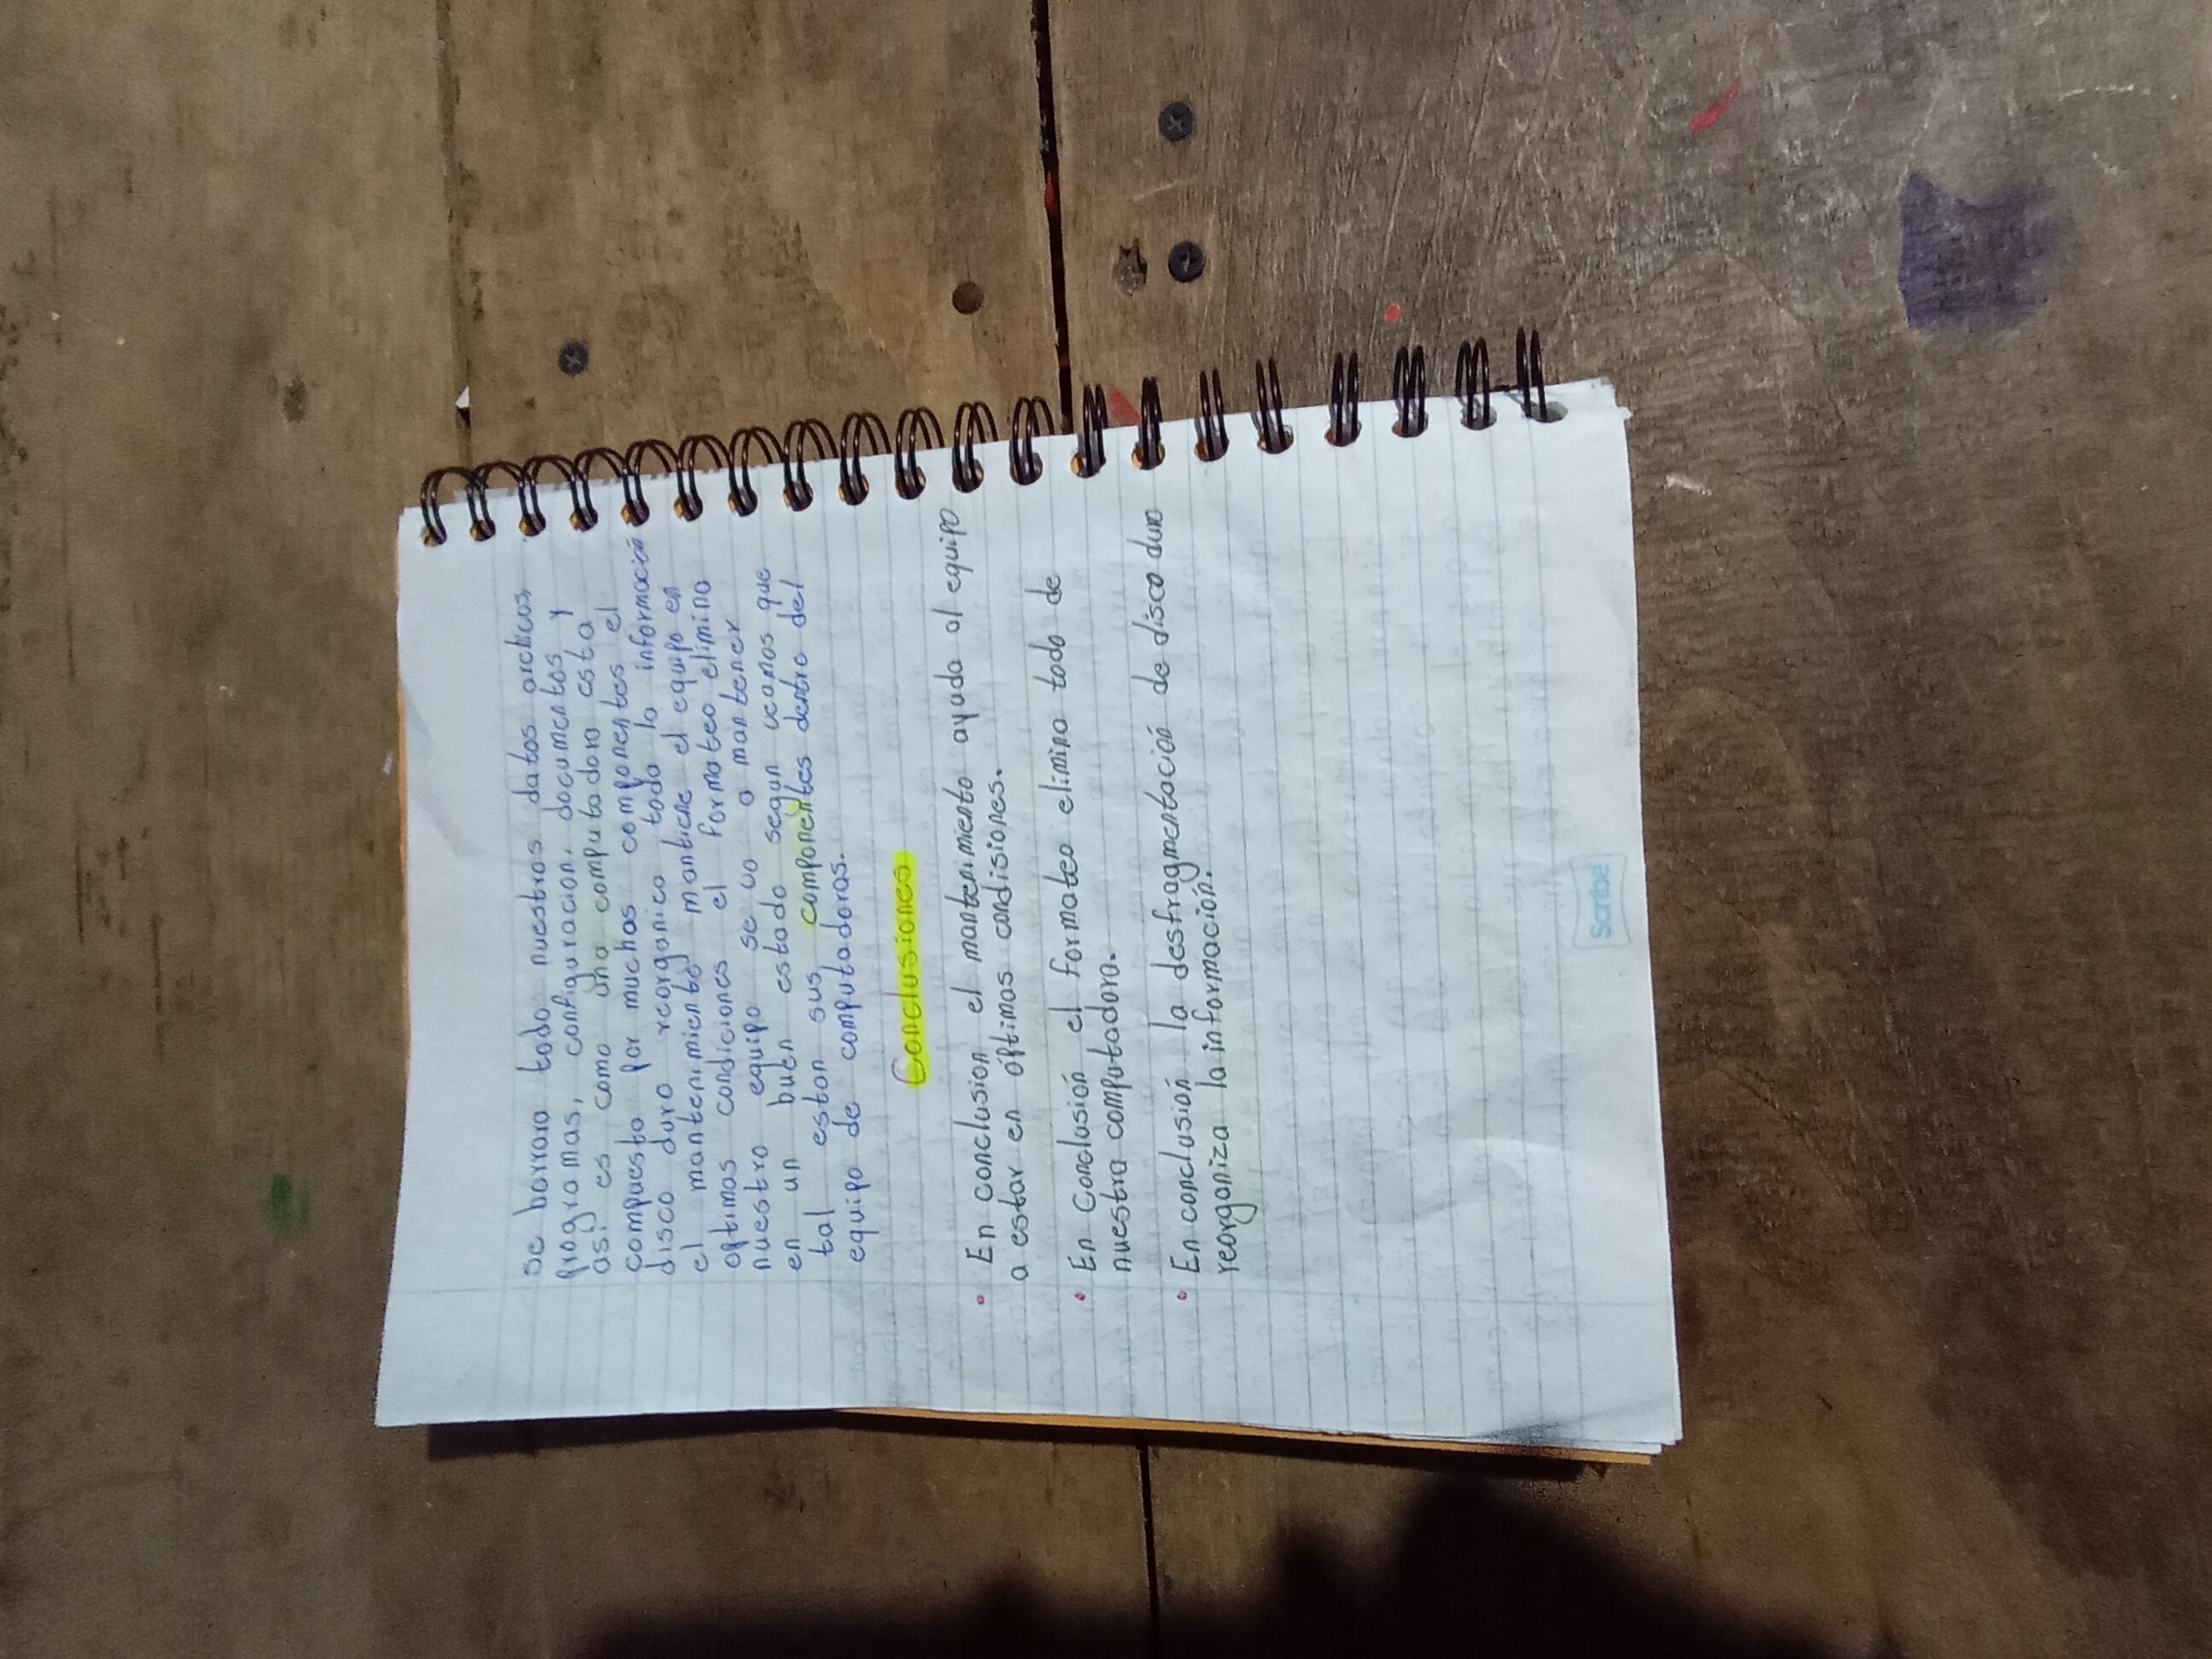 se borrara todo nuestros datos archivos
programas, configuracion, documentos y
asi es como una computadora esta
compuesto por muchas componentes el
disco duro reorganica toda la información
el mantenimiento mantiene el equipo en
optimas condiciones el formateo elimina
nuestro equipo se va a mantener
en un buen estado segun veamos que
tal estan sus componentes dentro del
equipo de computadoras.
Conclusiones
• En conclusion el mantenimiento ayuda al equipo
a estar en óptimas condisiones.
• En Conclusión el formateo elimina todo de
nuestra computadora.
• En conclusión la desfragmentación de disco duro
reorganiza la información.
Scribe